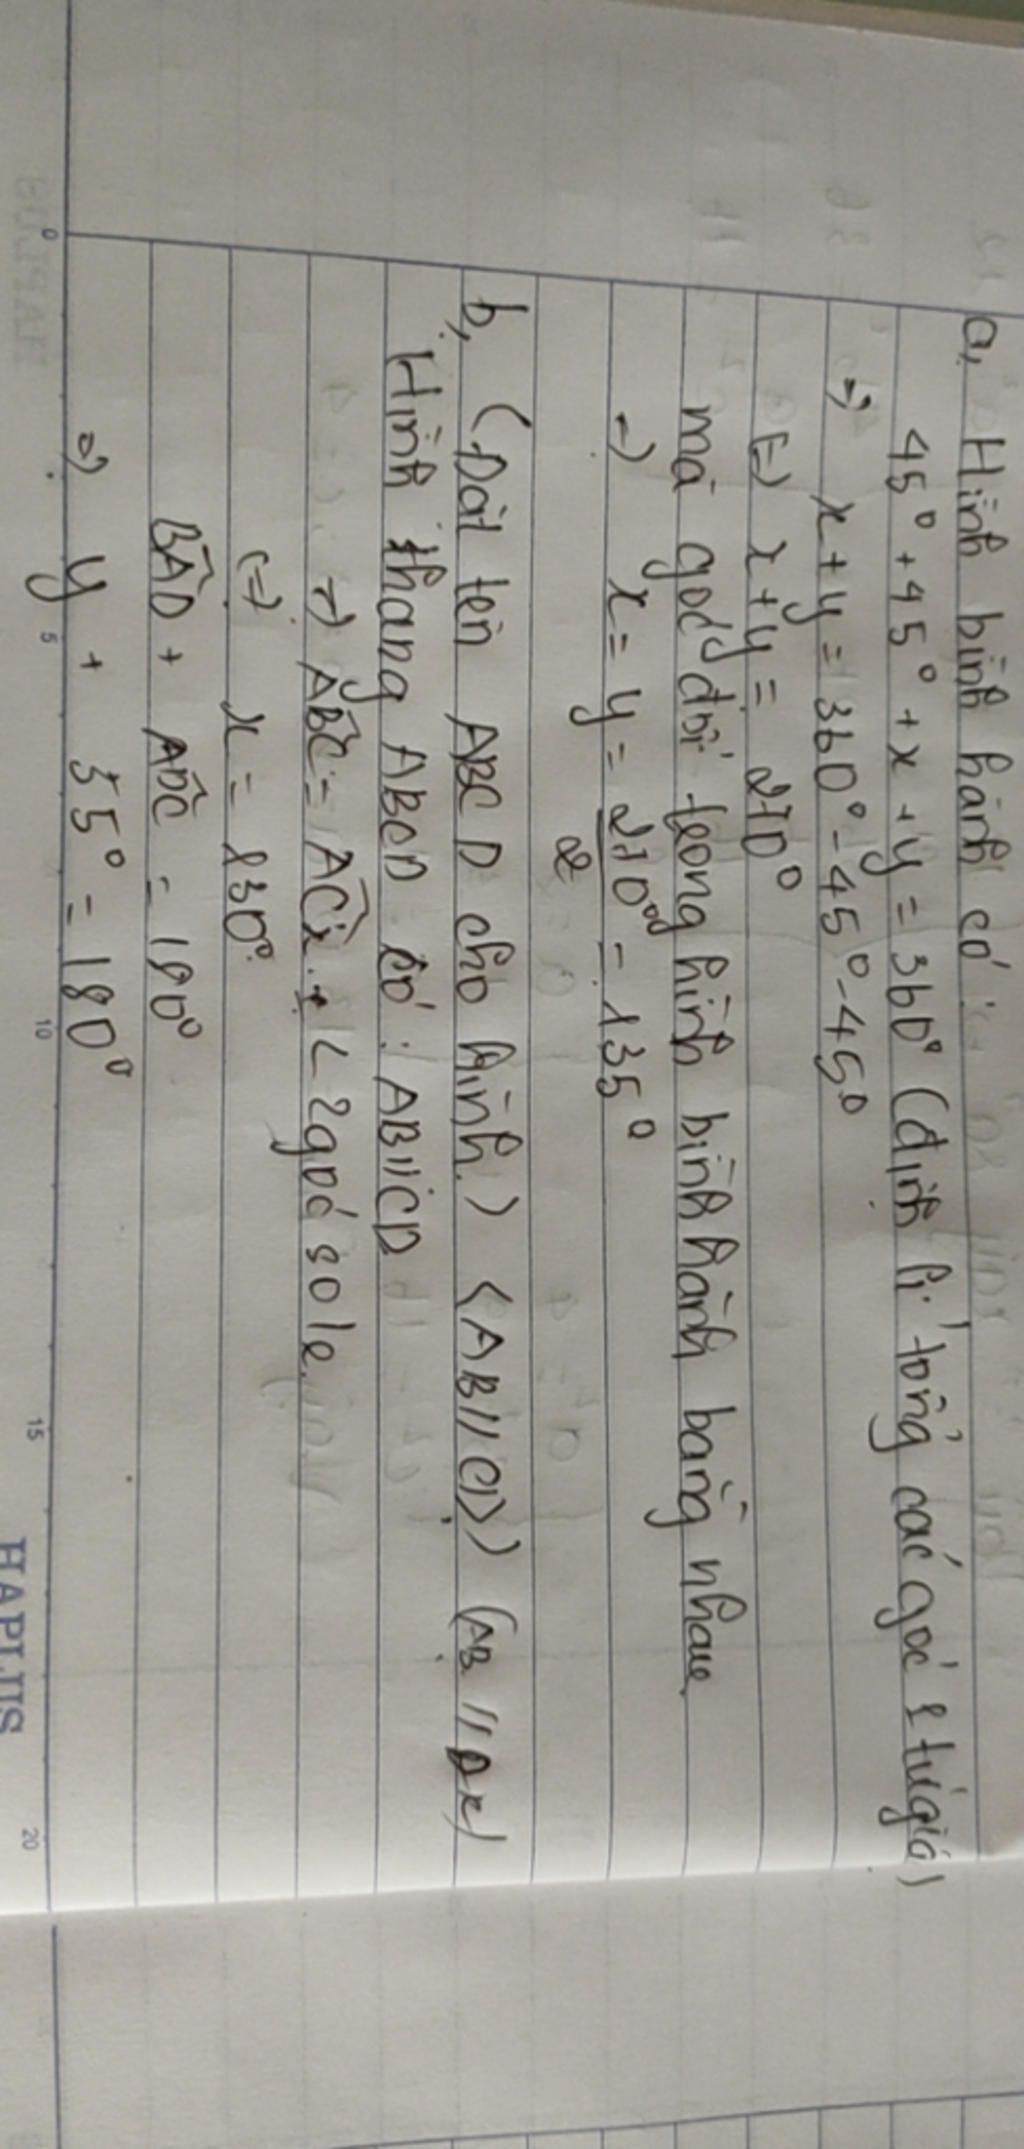 a, Hình bình hành có:
45° + 45° + x + y = 360° (định lí tổng các góc 1 tứ giác)
=> x + y = 360° - 45° - 45°
(=) x + y = 270°
mà góc đối trong hình bình hành bằng nhau
=) x = y = 270° / 2 = 135°
b, (Đặt tên ABCD cho hình.) <AB // CD> (AB // Dx)
Hình thang ABCD có: AB // CD
=) ABC = ACx < 2 góc sole
(=) x = 130°
BAD + ADC = 180°
=) y + 55° = 180°
0 5 10 15 20
HAPLUS